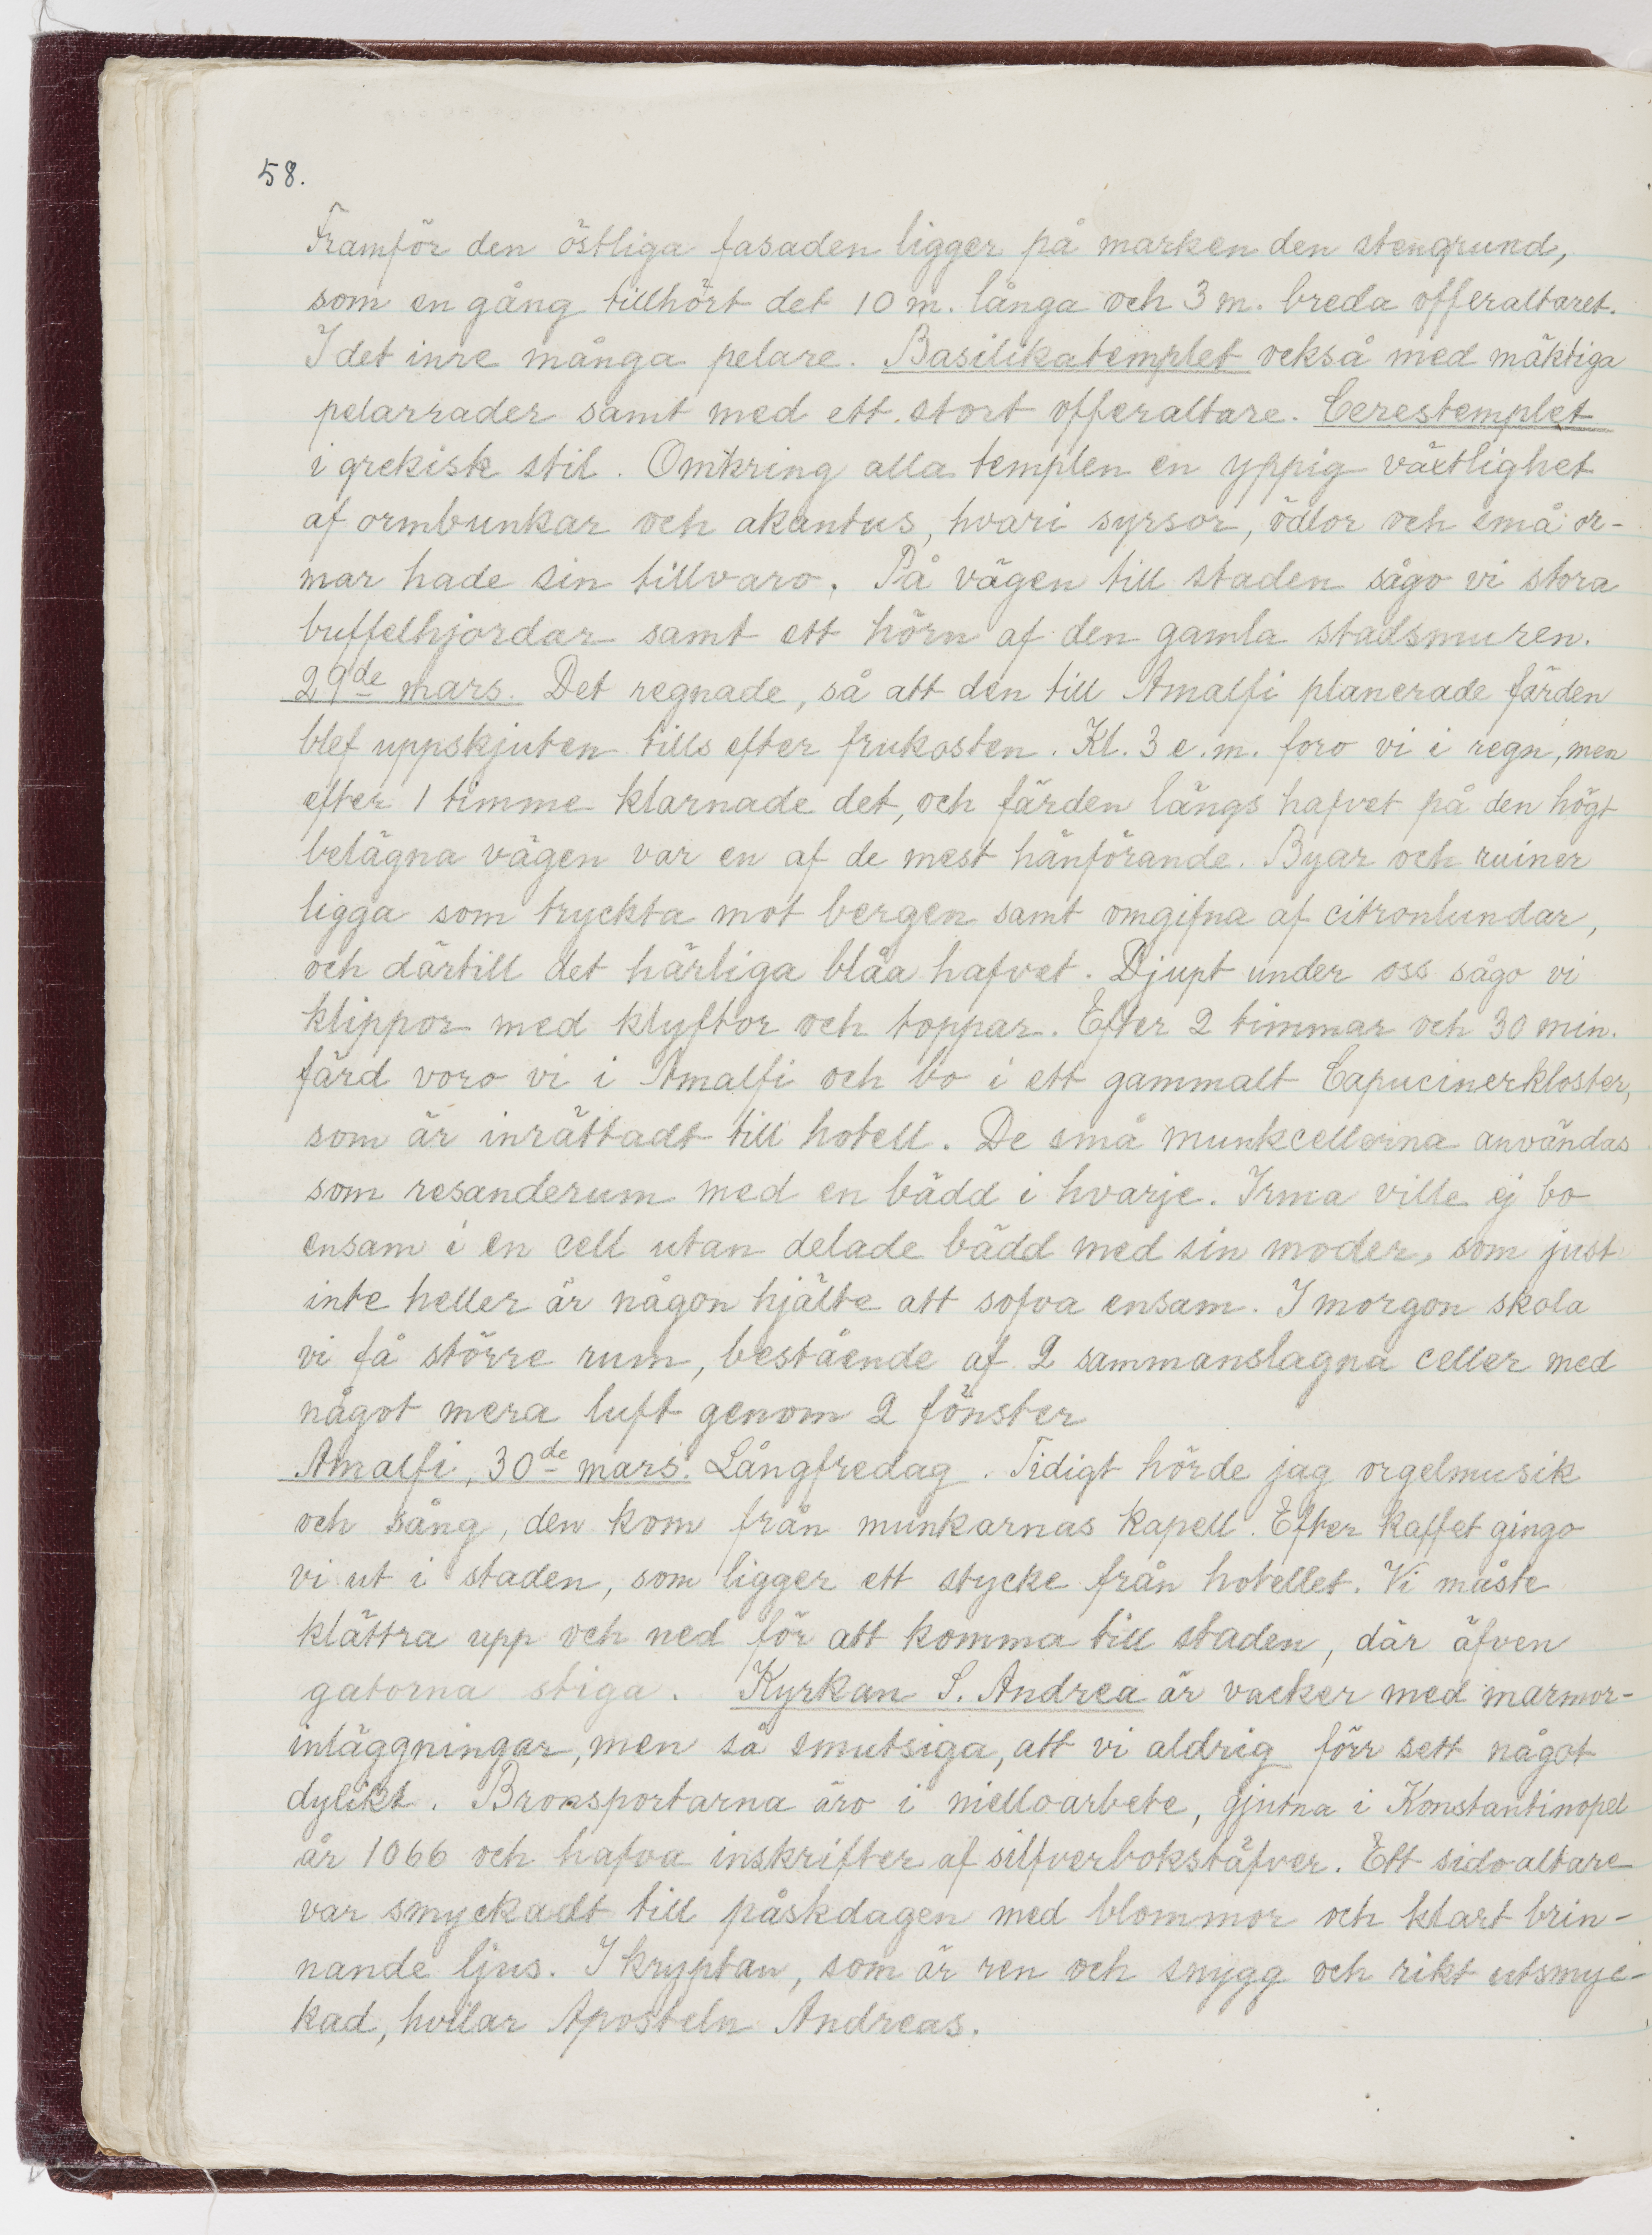 58.
Framför den östliga fasaden ligger på marken den stengrund,
som en gång tillhört det 10 m. långa och 3 m. breda offeraltaret.
I det inre många pelare. Basilikatemplet också med mäktiga
pelarrader samt med ett stort offeraltare. Cerestemplet
i grekisk stil. Omkring alla templen en yppig växtlighet
af ormbunkar och akantus, hvari syrsor, ödlor och små or-
mar hade sin tillvaro. På vägen till staden sågo vi stora
buffelhjordar samt ett hörn af den gamla stadsmuren.
29de mars. Det regnade, så att den till Amalfi planerade färden
blef uppskjuten tills efter frukosten. Kl. 3 e.m. foro vi i regn, men
efter 1 timme klarnade det, och färden längs hafvet på den högt
belägna vägen var en af de mest hänförande. Byar och ruiner
ligga som tryckta mot bergen samt omgifna af citronlundar,
och därtill det härliga blåa hafvet. Djupt under oss sågo vi
klippor med klyftor och toppar. Efter 2 timmar och 30 min.
färd voro vi i Amalfi och bo i ett gammalt Capucinerkloster,
som är inrättadt till hotell. De små munkcellerna användas
som resanderum med en bädd i hvarje. Irma ville ej bo
ensam i en cell utan delade bädd med sin moder, som just
inte heller är någon hjälte att sofva ensam. I morgon skola
vi få större rum, bestående af 2 sammanslagna celler med
något mera luft genom 2 fönster
Amalfi, 30de mars. Långfredag. Tidigt hörde jag orgelmusik
och sång, den kom från munkarnas kapell. Efter kaffet gingo
vi ut i staden, som ligger ett stycke från hotellet. Vi måste
klättra upp och ned för att komma till staden, där äfven
gatorna stiga. Kyrkan S. Andrea är vacker med marmor-
inläggningar, men så smutsiga, att vi aldrig förr sett något
dylikt. Bronsportarna äro i mielloarbete, gjutna i Konstantinopel
år 1066 och hafva inskrifter af silfverbokstäfver. Ett sidoaltare
var smyckadt till påskdagen med blommor och klart brin-
nande ljus. I kryptan, som är ren och snygg och rikt utsmyc-
kad, hvilar Aposteln Andreas.